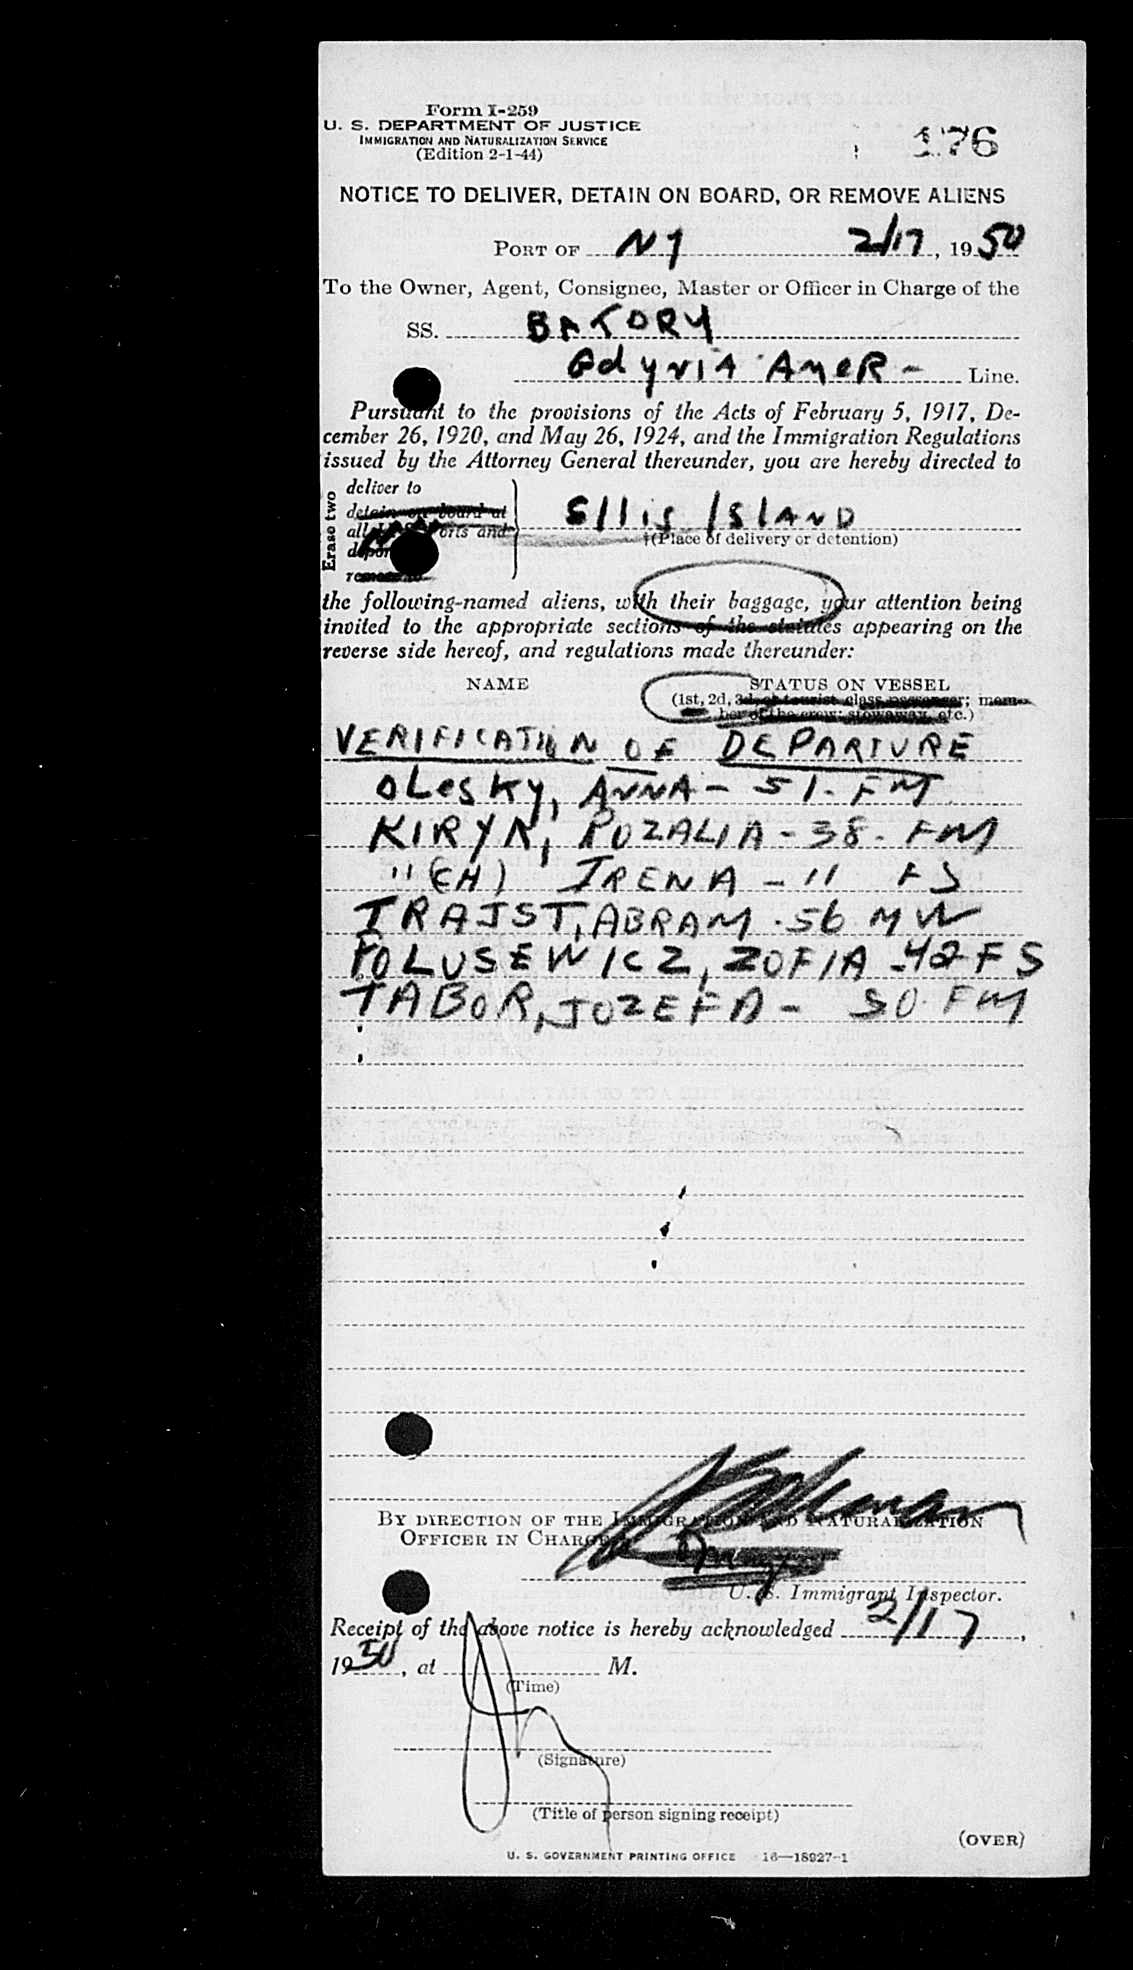 Form I-259
U. S. DEPARTMENT OF JUSTICE
IMMIGRATION AND NATURALIZATION SERVICE
(Edition 2-1-44)
176
NOTICE TO DELIVER, DETAIN ON BOARD, OR REMOVE ALIENS
PORT OF NY 2/17, 1950
To the Owner, Agent, Consignee, Master or Officer in Charge of the
SS. BATORY
Gdynia AmeR- Line.
Pursuant to the provisions of the Acts of February 5, 1917, De-
cember 26, 1920, and May 26, 1924, and the Immigration Regulations
issued by the Attorney General thereunder, you are hereby directed to
Erase two
deliver to
detain on board at
all ports and
Ellis IslAND
†(Place of delivery or detention)
the following-named aliens, with their baggage, your attention being
invited to the appropriate sections of the statutes appearing on the
reverse side hereof, and regulations made thereunder:
NAME STATUS ON VESSEL
(1st, 2d, 3d, or tourist class passenger; mem-
ber of the crew; stowaway, etc.)
VERIFICATION OF DEPARTURE
OLESKY, ANNA - 51. FM
KIRYK, ROZALIA - 38 - FM
" (CH) IRENA - 11 FS
TRAJST, ABRAM - 56 MW
POLUSEWICZ, ZOFIA - 42 FS
TABOR, JOZEFA - 30. FM
BY DIRECTION OF THE IMMIGRATION AND NATURALIZATION
OFFICER IN CHARGE
U. S. Immigrant Inspector.
Receipt of the above notice is hereby acknowledged 2/17,
1950, at M.
(Time)
(Signature)
(Title of person signing receipt)
(OVER)
U. S. GOVERNMENT PRINTING OFFICE 16—18927-1